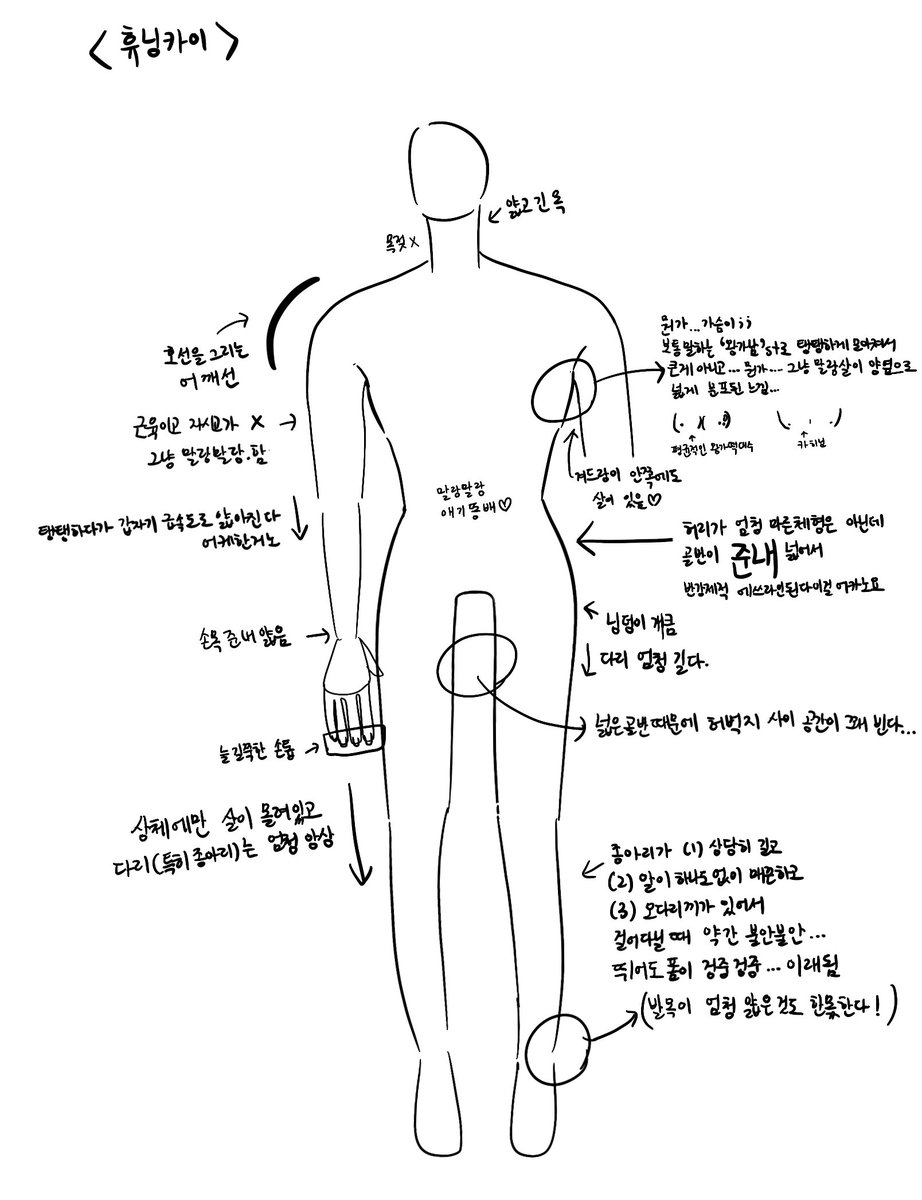 < 휴닝카이 >
얇고 긴 목
목젖 x
호선을 그리는
어깨선
뭔가... 가슴이;;
보통 말하는 '왕가남'st로 탱탱하게 모아져서
큰게 아니고... 뭔가... 그냥 말랑살이 양옆으로
넓게 분포된 느낌...
평균적인 왕가떡대수
카치보
근육이고 자시고가 x
그냥 말랑말랑.함
겨드랑이 안쪽에도
살이 있음♡
말랑말랑
애기똥배♡
탱탱하다가 갑자기 급속도로 얇아진다
어케한거노
허리가 엄청 마른체형은 아닌데
골반이 준내 넓어서
반강제적 에쓰라인된다이걸어카노요
손목 준내 얇음
님덤이 개큼
다리 엄청 길다.
넓은골반때문에 허벅지 사이 공간이 꽤 빈다...
늘길쭉한 손톱
상체에만 살이 몰려있고
다리(특히 종아리)는 엄청 앙상
종아리가 (1) 상당히 길고
(2) 알이 하나도없이 매끈하고
(3) 오다리끼가 있어서
걸어다닐때 약간 불안불안...
뛰어도 폼이 겅중겅중... 이래됨
(발목이 엄청 얇은것도 한몫한다!)